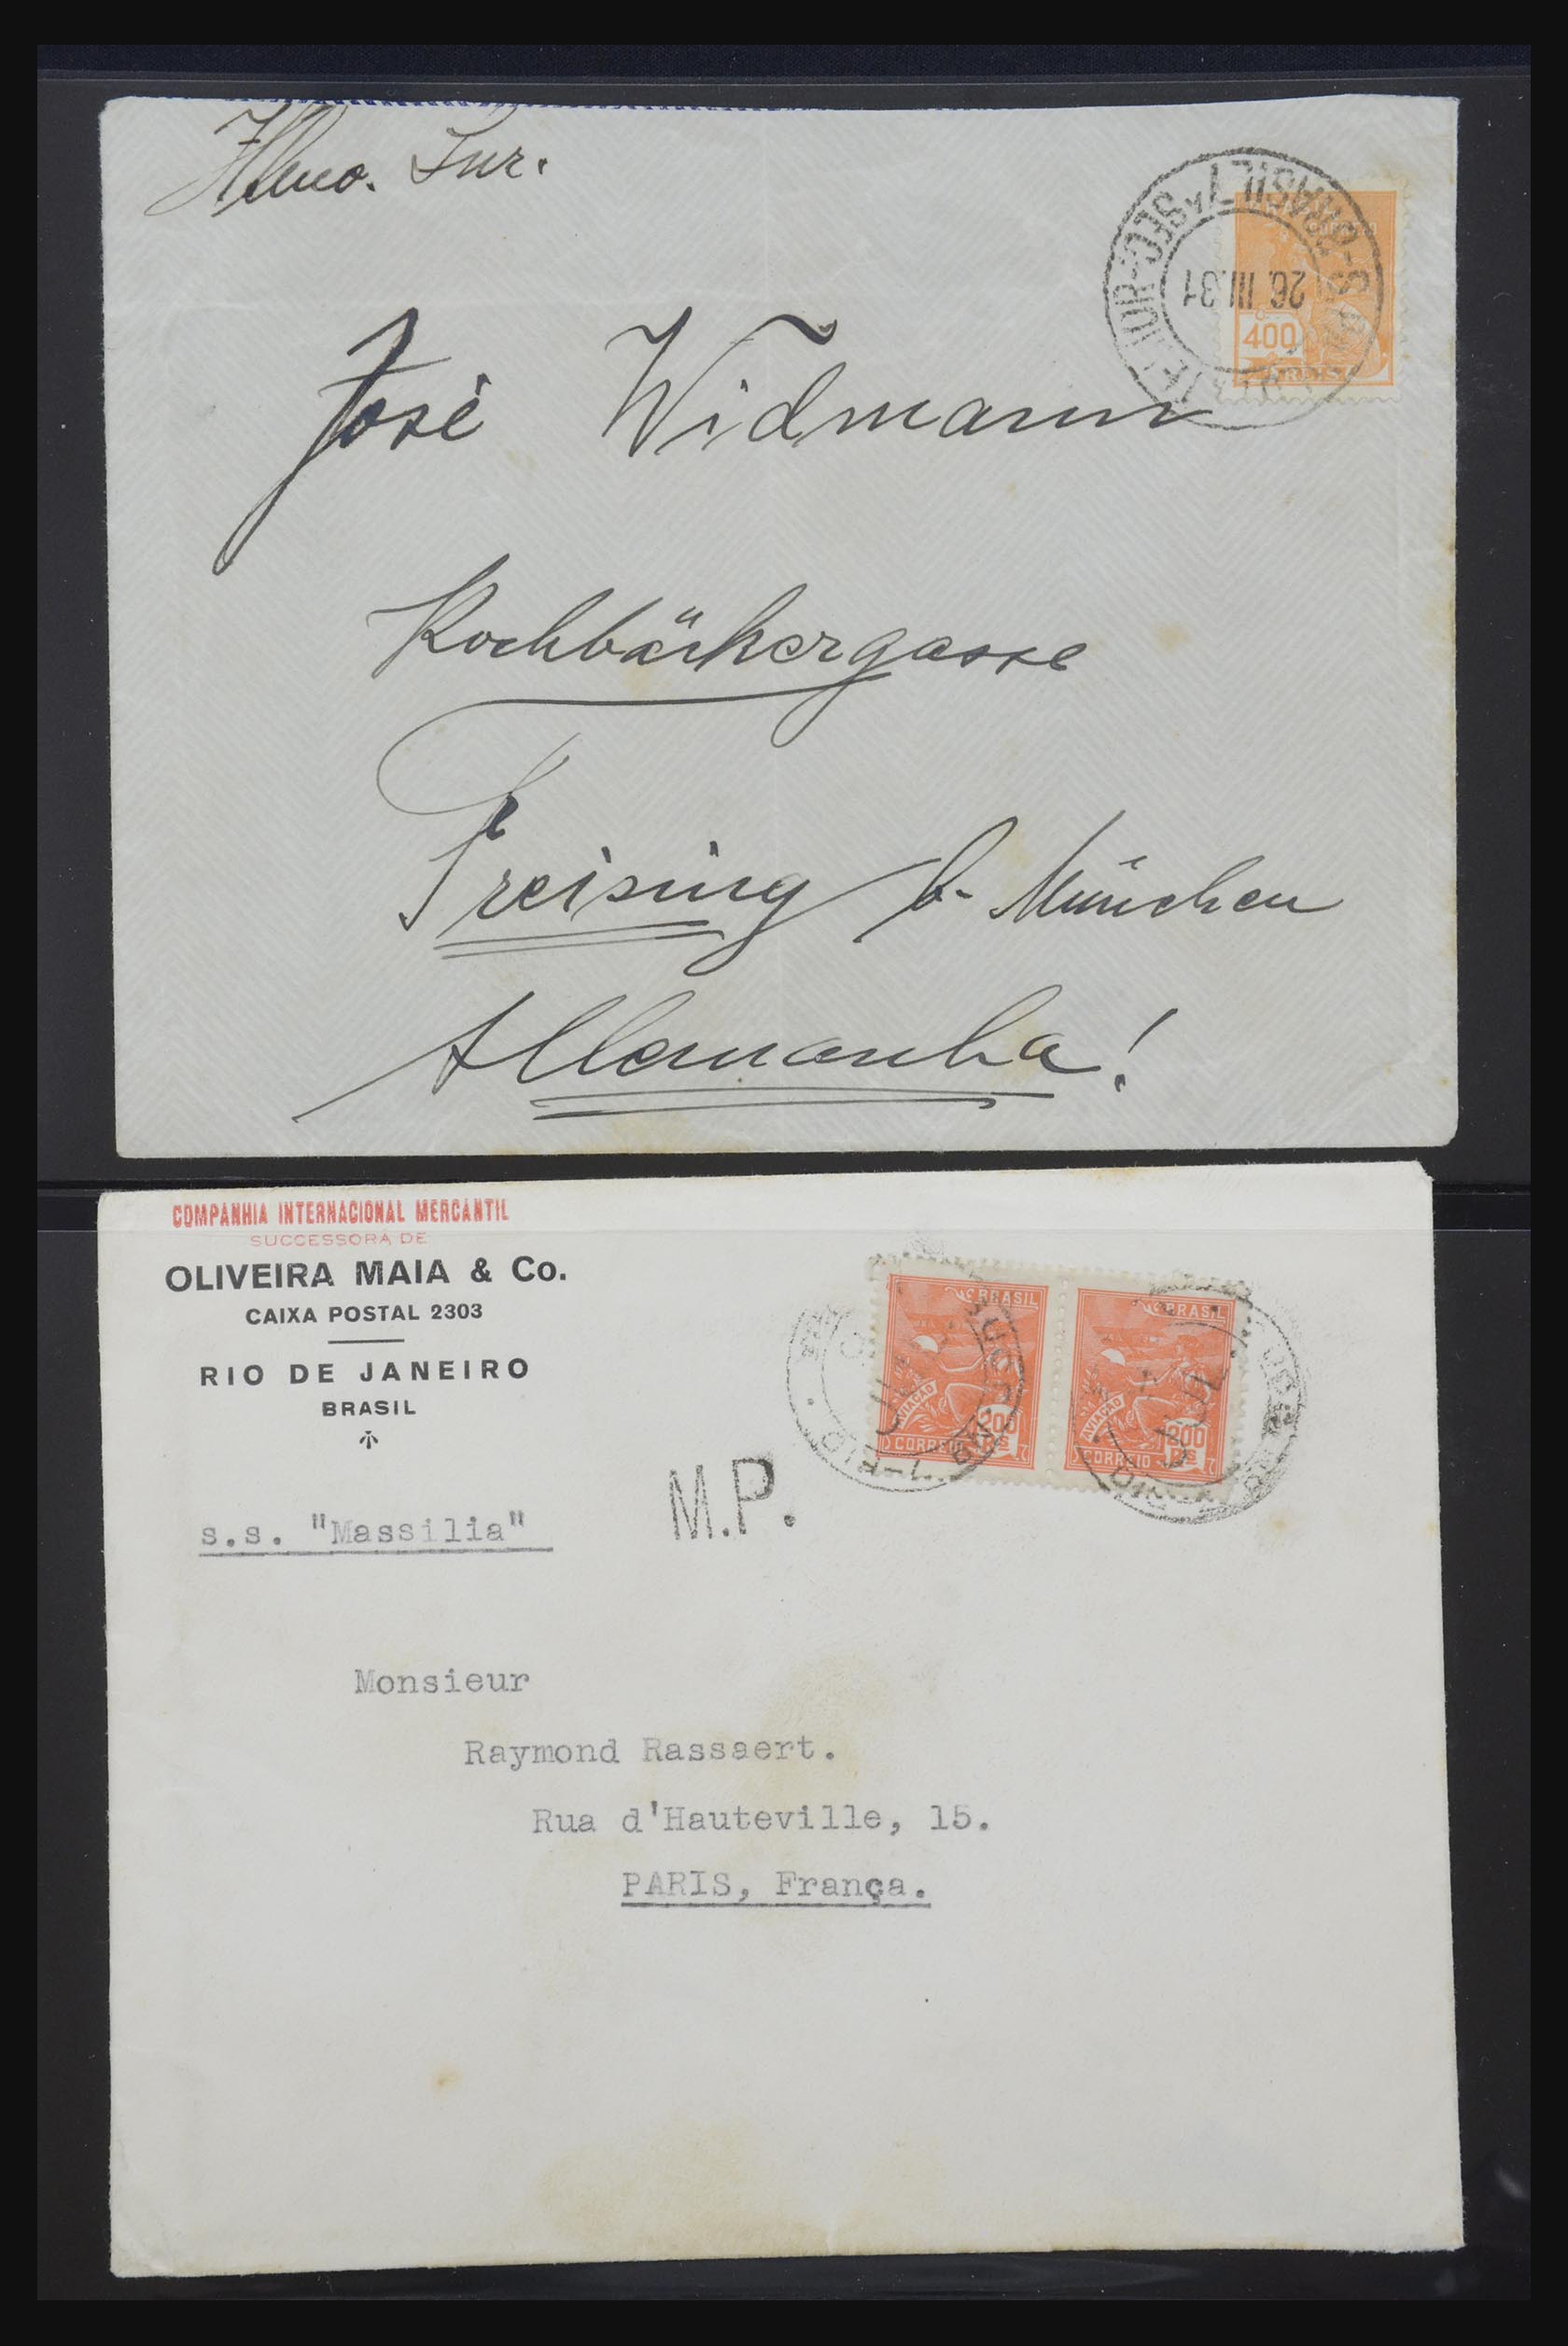 Illmo. Snr.
José Widmann
Kochbäckergasse
Freising b. München
Allemanha!
BRASIL 7ª SEC.
26 III.31
CORREIO
400
REIS
COMPANHIA INTERNACIONAL MERCANTIL
SUCCESSORA DE
OLIVEIRA MAIA & Co.
CAIXA POSTAL 2303
RIO DE JANEIRO
BRASIL
s.s. "Massilia"
M.P.
BRASIL
AVIAÇÃO
200
RS
CORREIO
BRASIL
AVIAÇÃO
200
RS
CORREIO
JUL
RIO
Monsieur
Raymond Rassaert.
Rua d'Hauteville, 15.
PARIS, França.